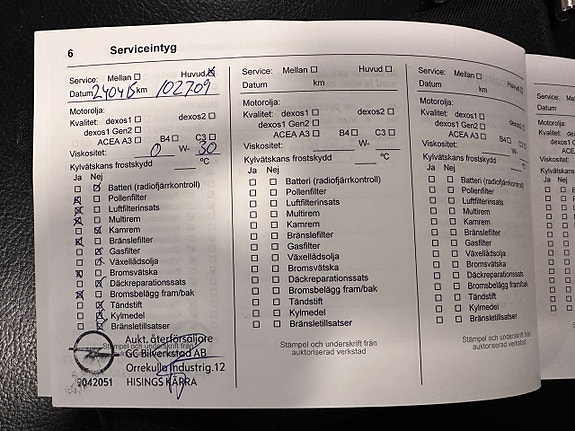 6 Serviceintyg
Service: Mellan ☐ Huvud ☒
Datum 240415 km 102709
Motorolja:
Kvalitet: dexos1 ☐ dexos2 ☐
dexos1 Gen2 ☐
ACEA A3 ☐ B4 ☐ C3 ☐
Viskositet: 0 W- 30
Kylvätskans frostskydd °C
Ja Nej
Batteri (radiofjärrkontroll)
Pollenfilter
Luftfilterinsats
Multirem
Kamrem
Bränslefilter
Gasfilter
Växellådsolja
Bromsvätska
Däckreparationssats
Bromsbelägg fram/bak
Tändstift
Kylmedel
Bränsletillsatser
Stämpel och underskrift från
Aukt. återförsäljare
GC Bilverkstad AB
Orrekulla Industrig.12
2042051 HISINGS KÄRRA
Service: Mellan ☐ Huvud ☐
Datum km
Motorolja:
Kvalitet: dexos1 ☐ dexos2 ☐
dexos1 Gen2 ☐
ACEA A3 ☐ B4 ☐ C3 ☐
Viskositet: W-
Kylvätskans frostskydd °C
Ja Nej
Batteri (radiofjärrkontroll)
Pollenfilter
Luftfilterinsats
Multirem
Kamrem
Bränslefilter
Gasfilter
Växellådsolja
Bromsvätska
Däckreparationssats
Bromsbelägg fram/bak
Tändstift
Kylmedel
Bränsletillsatser
Stämpel och underskrift från
auktoriserad verkstad
Service: Mellan ☐ Huvud ☐
Datum km
Motorolja:
Kvalitet: dexos1 ☐ dexos2 ☐
dexos1 Gen2 ☐
ACEA A3 ☐ B4 ☐ C3 ☐
Viskositet: W-
Kylvätskans frostskydd °C
Ja Nej
Batteri (radiofjärrkontroll)
Pollenfilter
Luftfilterinsats
Multirem
Kamrem
Bränslefilter
Gasfilter
Växellådsolja
Bromsvätska
Däckreparationssats
Bromsbelägg fram/bak
Tändstift
Kylmedel
Bränsletillsatser
Stämpel och underskrift från
auktoriserad verkstad
Service: M
Datum
Motorolja:
Kvalitet: de
dexos1
ACE
Viskositet:
Kylvätskans fr
Ja Nej